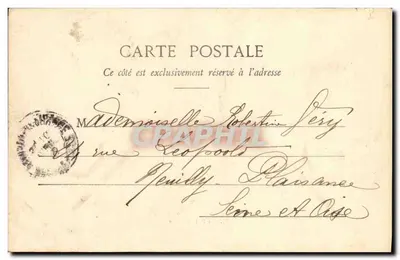 CARTE POSTALE
Ce côté est exclusivement réservé à l'adresse
Mademoiselle Robertine Géry
CARTPHIL
rue Léopold
Neuilly-Plaisance
Seine et Oise